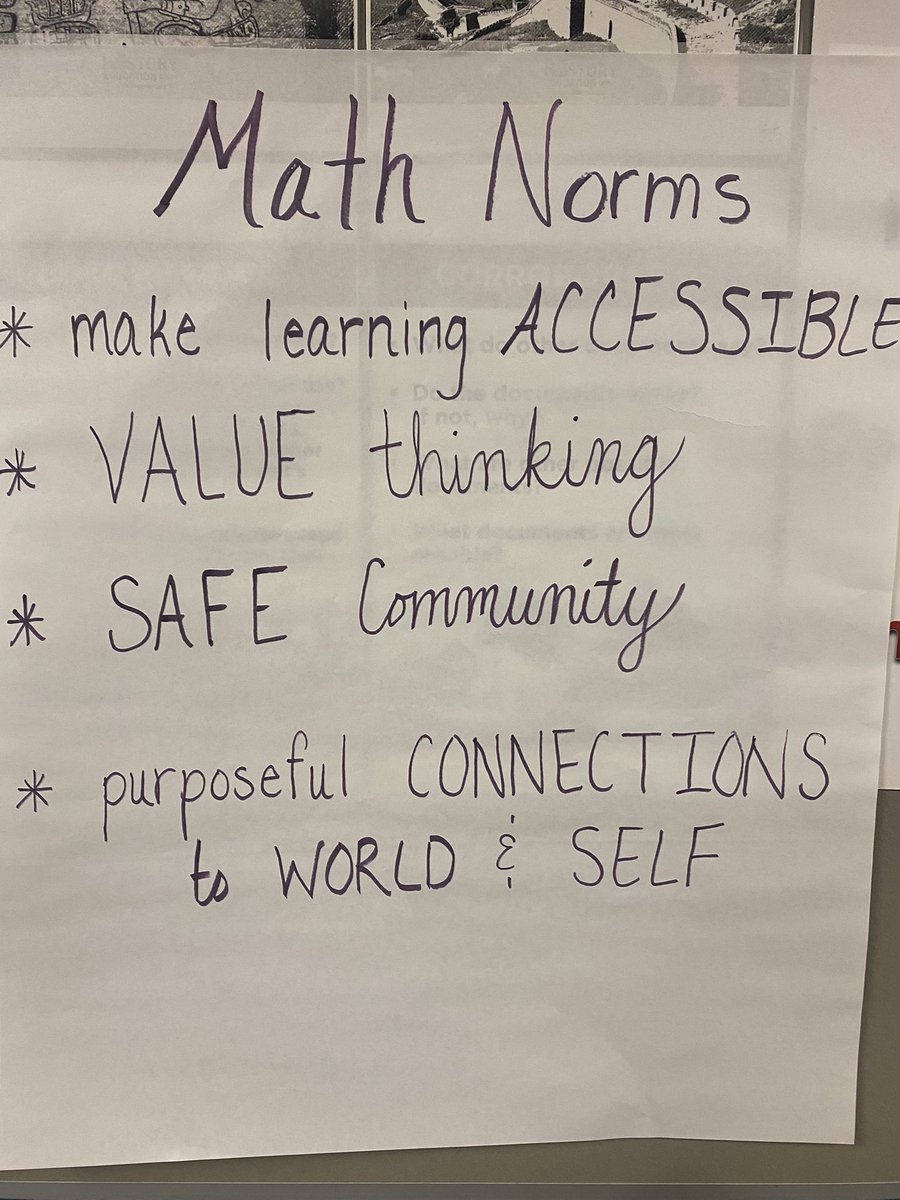 Math Norms
* make learning ACCESSIBLE
* VALUE thinking
* SAFE Community
* purposeful CONNECTIONS
to WORLD & SELF